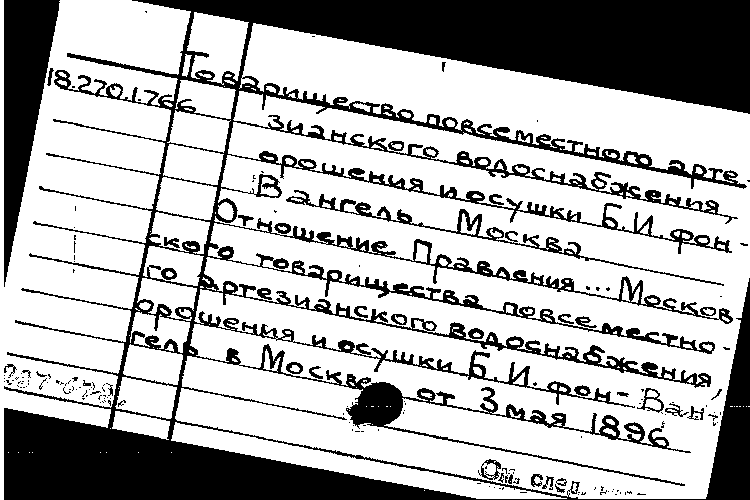 18.270.1.766
Товарищество повсеместного арте-
зианского водоснабжения,
орошения и осушки Б.И. фон-
Вангель. Москва.
Отношение Правления... Москов-
ского товарищества повсеместно-
го артезианского водоснабжения,
орошения и осушки Б.И. фон-Ван-
гель в Москве от 3 мая 1896
См. след.